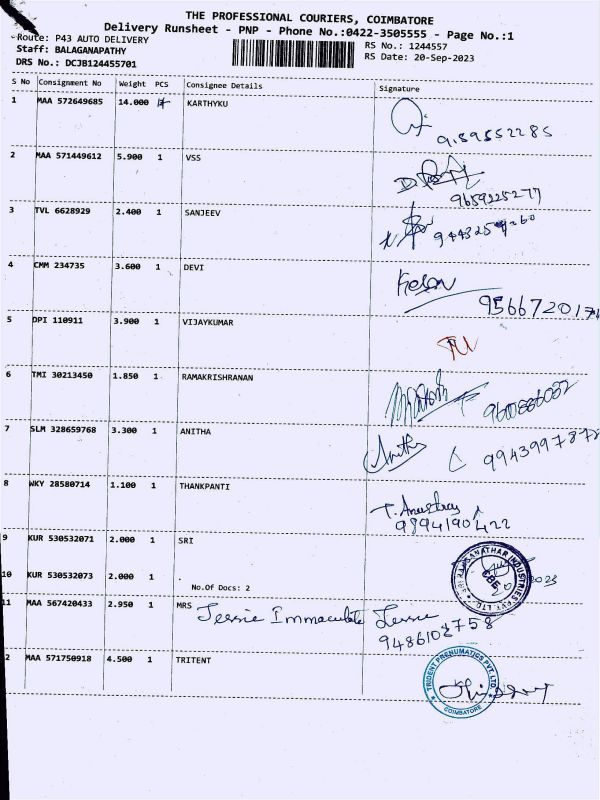 THE PROFESSIONAL COURIERS, COIMBATORE
Delivery Runsheet - PNP - Phone No.:0422-3505555 - Page No.:1
Route: P43 AUTO DELIVERY
RS No.: 1244557
Staff: BALAGANAPATHY
RS Date: 20-Sep-2023
DRS No.: DCJB124455701
S No Consignment No Weight PCS Consignee Details Signature
1 MAA 572649685 14.000 KARTHYKU
9159552285
2 MAA 571449612 5.900 1 VSS
9659225277
3 TVL 6628929 2.400 1 SANJEEV
4 CMM 234735 3.600 1 DEVI
9566720174
5 DPI 110911 3.900 1 VIJAYKUMAR
6 TMI 30213450 1.850 1 RAMAKRISHRANAN
7 SLM 328659768 3.300 1 ANITHA
Anitha 9943997872
8 WKY 28580714 1.100 1 THANKPANTI
9894190422
9 KUR 530532071 2.000 1 SRI
10 KUR 530532073 2.000 1 .
No.Of Docs: 2
11 MAA 567420433 2.950 1 MRS Jessie Immaculate Jessie
9486103758
2 MAA 571750918 4.500 1 TRITENT
TRIDENT PNEUMATICS PVT. LTD.
COIMBATORE